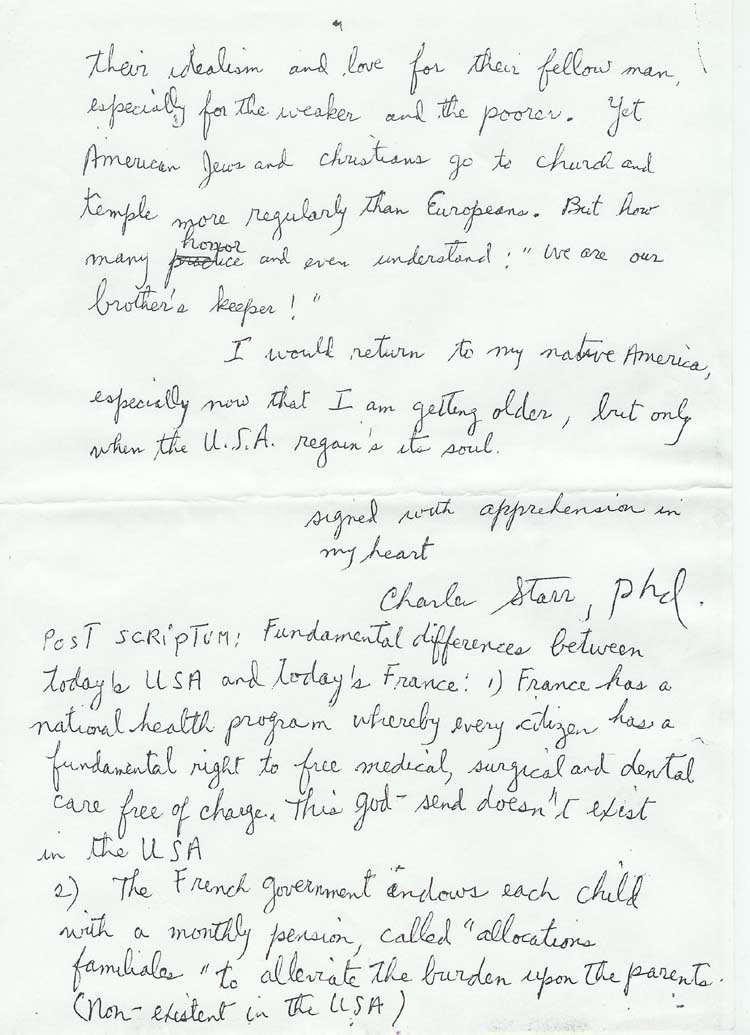 their idealism and love for their fellow man,
especially for the weaker and the poorer. Yet
American Jews and christians go to church and
temple more regularly than Europeans. But how
honor
many practice and even understand: "We are our
brother's keeper!"
I would return to my native America,
especially now that I am getting older, but only
when the U.S.A. regain's its soul.
signed with apprehension in
my heart
Charla Starr, phd.
POST SCRIPTUM: Fundamental differences between
today's USA and today's France: 1) France has a
national health program whereby every citizen has a
fundamental right to free medical, surgical and dental
care free of charge. This god-send doesn't exist
in the USA
2) The French government endows each child
with a monthly pension, called "allocations
familiales" to alleviate the burden upon the parents.
(Non-existent in the USA)